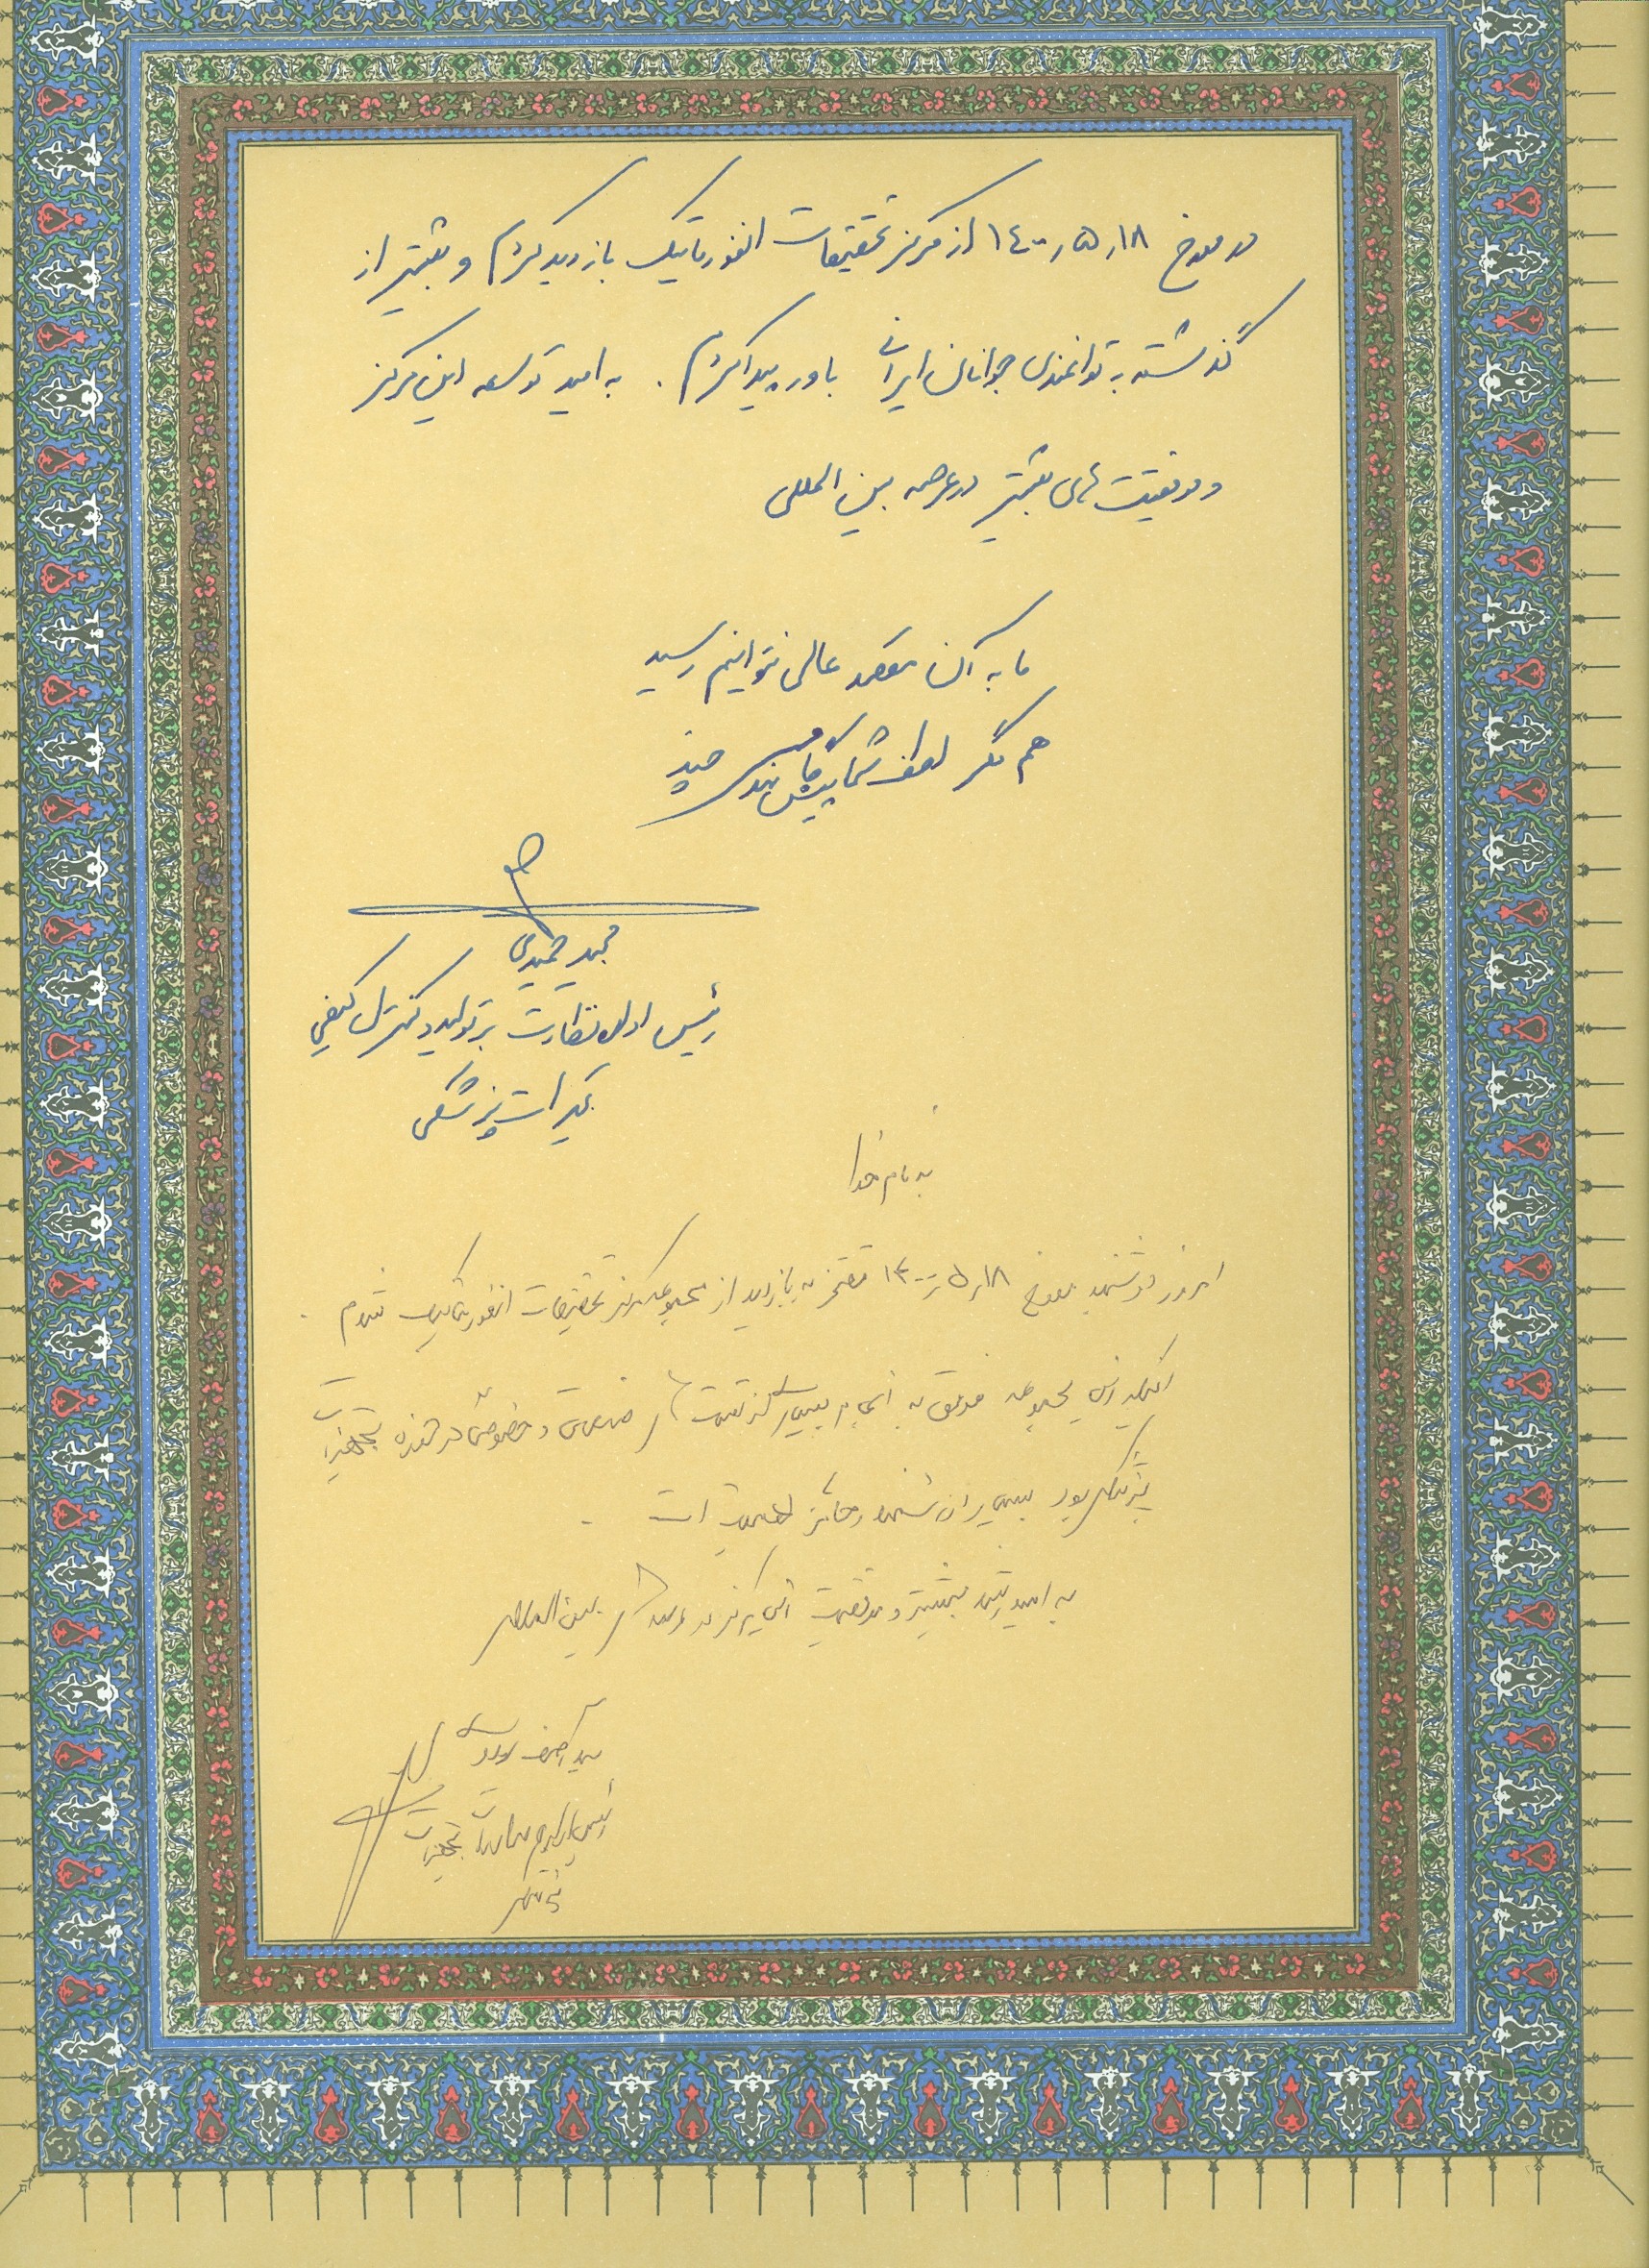 در مورخ ۱۴۰۰٫۵٫۱۸ از مرکز تحقیقات انفورماتیک بازدید کردم و بیشتر از
گذشته به توانمندی جوانان ایرانی باور پیدا کردم . به امید توسعه این مرکز
و موفقیت های بیشتر در عرصه بین المللی
ما به آن مقصد عالی نتوانیم رسید
هم مگر لطف شما پیش نهد گامی چند
مجید حمیدی
رئیس اداره نظارت بر تولید و کنترل کیفی
تجهیزات پزشکی
به نام خدا
امروز دوشنبه مورخ ۱۴۰۰٫۵٫۱۸ مفتخر به بازدید از مجموعه مرکز تحقیقات انفورماتیک شدم .
اینکه این مجموعه موفق به انجام بسیاری از و خصوصی در حوزه تجهیزات
پزشکی بود بسیار ارزشمند و حائز اهمیت است .
به امید رشد بیشتر و موفقیت این مرکز در عرصه های بین المللی
سید
رئیس تجهیزات
پزشکی